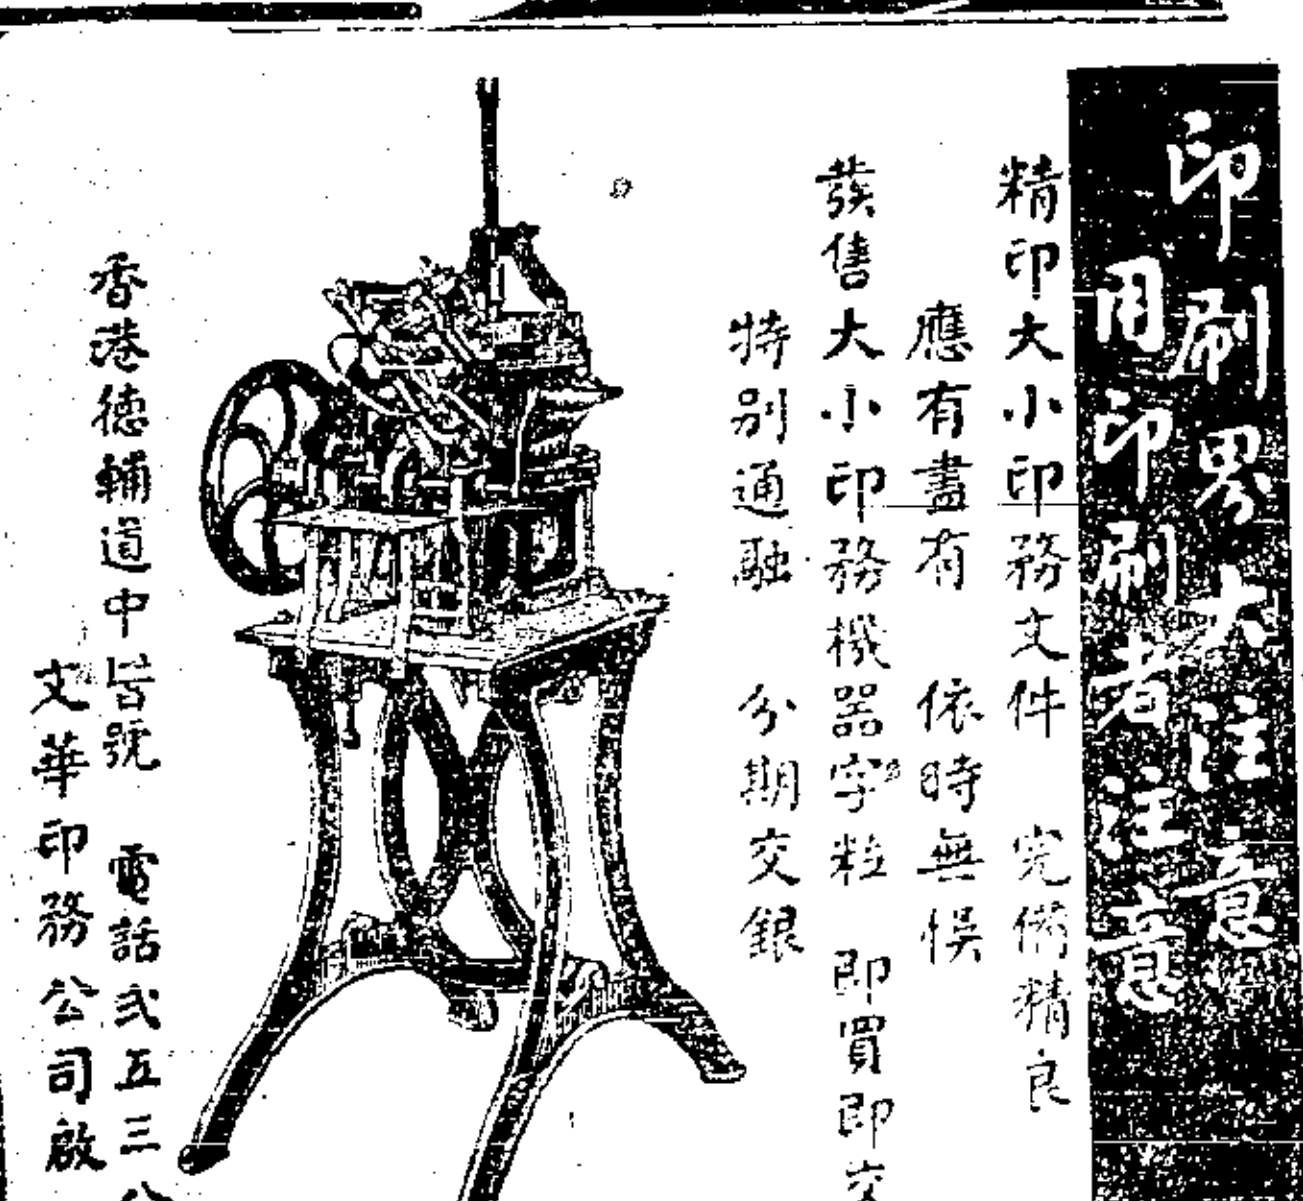 印刷界大注意
用印刷者注意
精印大小印務文件 完備精良
應有盡有 依時無悞
發售大小印務機器字粒 即買即交
特別通融 分期交銀
香港德輔道中 號 電話弍五三八
文華印務公司啟